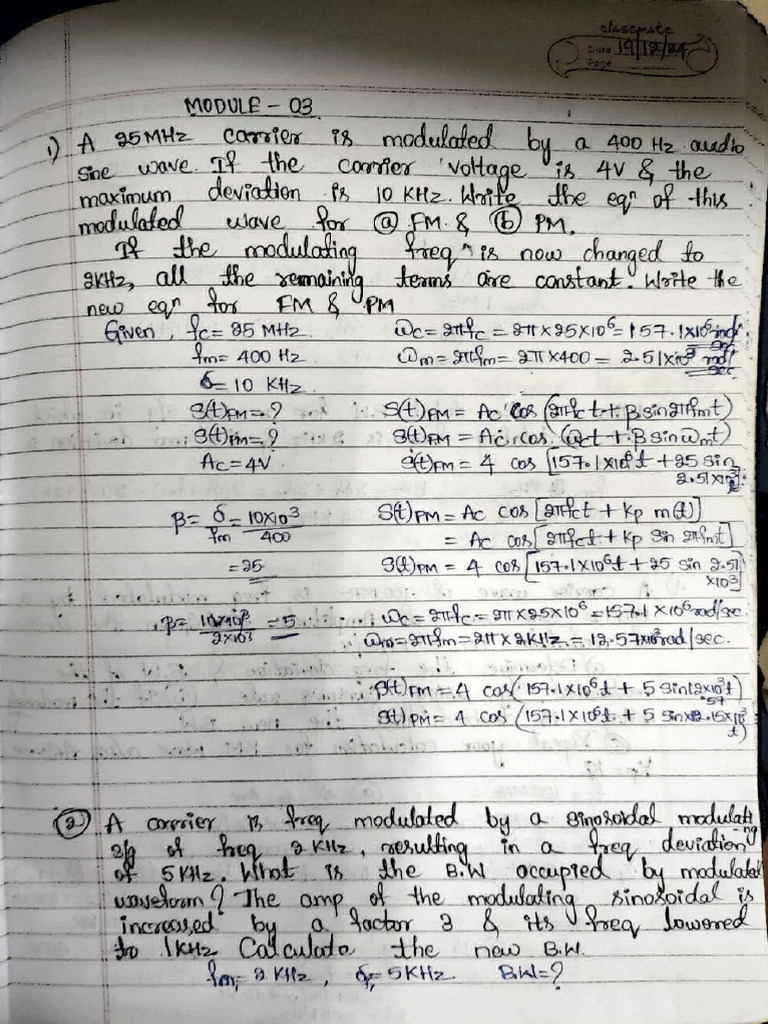 classmate
Date 19/12/24
Page
MODULE - 03
1) A 25 MHz carrier is modulated by a 400 Hz audio
sine wave. If the carrier voltage is 4V & the
maximum deviation is 10 KHz. Write the eqn of this
modulated wave for (a) FM & (b) PM.
If the modulating freqn is now changed to
2KHz, all the remaining terms are constant. Write the
new eqn for FM & PM
Given, fc = 25 MHz ωc = 2πfc = 2π×25×10⁶ = 157.1×10⁶ rad/sec
fm = 400 Hz ωm = 2πfm = 2π×400 = 2.51×10³ rad/sec
δ = 10 KHz
S(t)FM = ? S(t)FM = Ac cos (2πfct + β sin 2πfmt)
S(t)PM = ? S(t)FM = Ac cos (ωct + β sin ωmt)
Ac = 4V S(t)FM = 4 cos [157.1×10⁶t + 25 sin
2.51×10³t]
β = δ/fm = 10×10³/400 S(t)PM = Ac cos [2πfct + Kp m(t)]
= Ac cos [2πfct + Kp sin 2πfmt]
= 25 S(t)PM = 4 cos [157.1×10⁶t + 25 sin 2.51
×10³]
β = 10×10³/2×10³ = 5 ωc = 2πfc = 2π×25×10⁶ = 157.1×10⁶ rad/sec.
ωm = 2πfm = 2π×2KHz = 12.57×10³ rad/sec.
S(t)FM = 4 cos (157.1×10⁶t + 5 sin 12×10³t)
.57
S(t)PM = 4 cos (157.1×10⁶t + 5 sin 2.15×10³
t)
(2) A carrier is freq modulated by a sinosoidal modulating
s/g of freq 2 KHz, resulting in a freq deviation
of 5 KHz. What is the B.W occupied by modulated
waveform? The amp of the modulating sinosoidal is
increased by a factor 3 & its freq lowered
to 1KHz Calculate the new B.W.
fm₁ = 2 KHz, δ₁ = 5KHz. B.W = ?